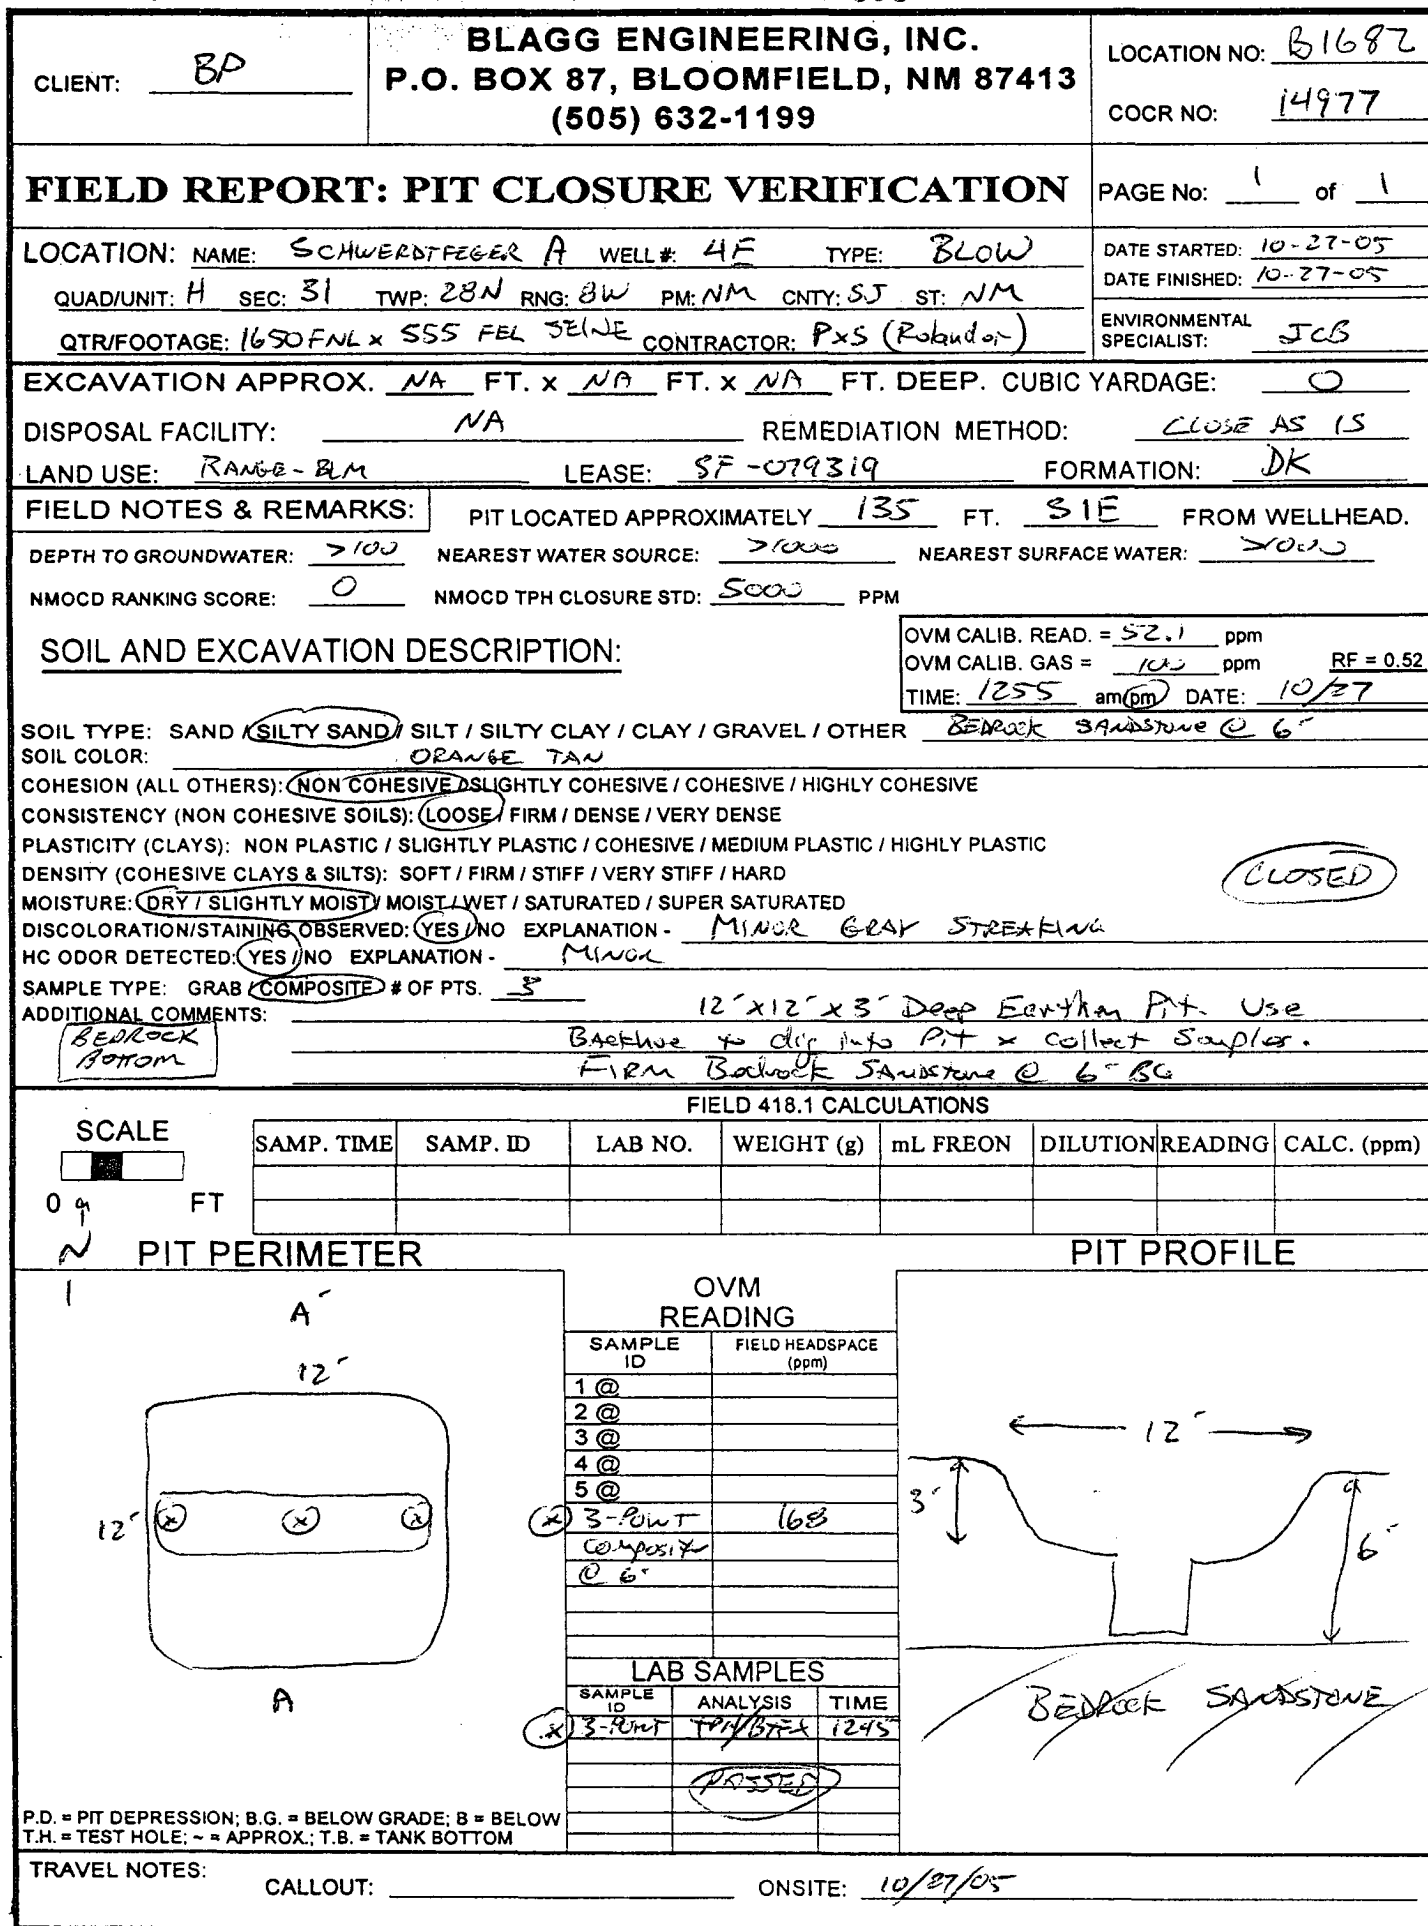 BLAGG ENGINEERING, INC.
P.O. BOX 87, BLOOMFIELD, NM 87413
(505) 632-1199
CLIENT: BP
LOCATION NO: B1682
COCR NO: 14977
FIELD REPORT: PIT CLOSURE VERIFICATION
PAGE No: 1 of 1
LOCATION: NAME: SCHWERDTFEGER A WELL #: 4E TYPE: BLOW
QUAD/UNIT: H SEC: 31 TWP: 28N RNG: 8W PM: NM CNTY: SJ ST: NM
QTR/FOOTAGE: 1650 FNL x 555 FEL SE/NE CONTRACTOR: P x S
DATE STARTED: 10-27-05
DATE FINISHED: 10-27-05
ENVIRONMENTAL SPECIALIST: JCB
EXCAVATION APPROX. NA FT. x NA FT. x NA FT. DEEP. CUBIC YARDAGE: 0
DISPOSAL FACILITY: NA REMEDIATION METHOD: CLOSE AS IS
LAND USE: RANGE - BLM LEASE: SF-079319 FORMATION: DK
FIELD NOTES & REMARKS: PIT LOCATED APPROXIMATELY 135 FT. S1E FROM WELLHEAD.
DEPTH TO GROUNDWATER: >100 NEAREST WATER SOURCE: >1000 NEAREST SURFACE WATER: >1000
NMOCD RANKING SCORE: 0 NMOCD TPH CLOSURE STD: 5000 PPM
SOIL AND EXCAVATION DESCRIPTION:
OVM CALIB. READ. = 52.1 ppm
OVM CALIB. GAS = 100 ppm RF = 0.52
TIME: 1255 am/pm DATE: 10/27
SOIL TYPE: SAND / SILTY SAND / SILT / SILTY CLAY / CLAY / GRAVEL / OTHER BEDROCK SANDSTONE @ 6'
SOIL COLOR: ORANGE TAN
COHESION (ALL OTHERS): NON COHESIVE / SLIGHTLY COHESIVE / COHESIVE / HIGHLY COHESIVE
CONSISTENCY (NON COHESIVE SOILS): LOOSE / FIRM / DENSE / VERY DENSE
PLASTICITY (CLAYS): NON PLASTIC / SLIGHTLY PLASTIC / COHESIVE / MEDIUM PLASTIC / HIGHLY PLASTIC
DENSITY (COHESIVE CLAYS & SILTS): SOFT / FIRM / STIFF / VERY STIFF / HARD
CLOSED
MOISTURE: DRY / SLIGHTLY MOIST / MOIST / WET / SATURATED / SUPER SATURATED
DISCOLORATION/STAINING OBSERVED: YES / NO EXPLANATION - MINOR GRAY STREAKING
HC ODOR DETECTED: YES / NO EXPLANATION - MINOR
SAMPLE TYPE: GRAB / COMPOSITE # OF PTS. 3
ADDITIONAL COMMENTS: 12' x 12' x 3' Deep Earthen Pit. Use
Backhoe to dig into Pit & Collect Samples.
FIRM Bedrock SANDSTONE @ 6' BG
BEDROCK
BOTTOM
FIELD 418.1 CALCULATIONS
SCALE
0 FT
SAMP. TIME SAMP. ID LAB NO. WEIGHT (g) mL FREON DILUTION READING CALC. (ppm)
N
PIT PERIMETER
A'
12'
12'
A
OVM
READING
SAMPLE ID FIELD HEADSPACE (ppm)
1 @
2 @
3 @
4 @
5 @
3-POINT 168
COMPOSITE
@ 6'
LAB SAMPLES
SAMPLE ID ANALYSIS TIME
3-POINT TPH/BTEX 1245
PASSED
PIT PROFILE
12'
3'
6'
BEDROCK SANDSTONE
P.D. = PIT DEPRESSION; B.G. = BELOW GRADE; B = BELOW
T.H. = TEST HOLE; ~ = APPROX.; T.B. = TANK BOTTOM
TRAVEL NOTES: CALLOUT: ONSITE: 10/27/05